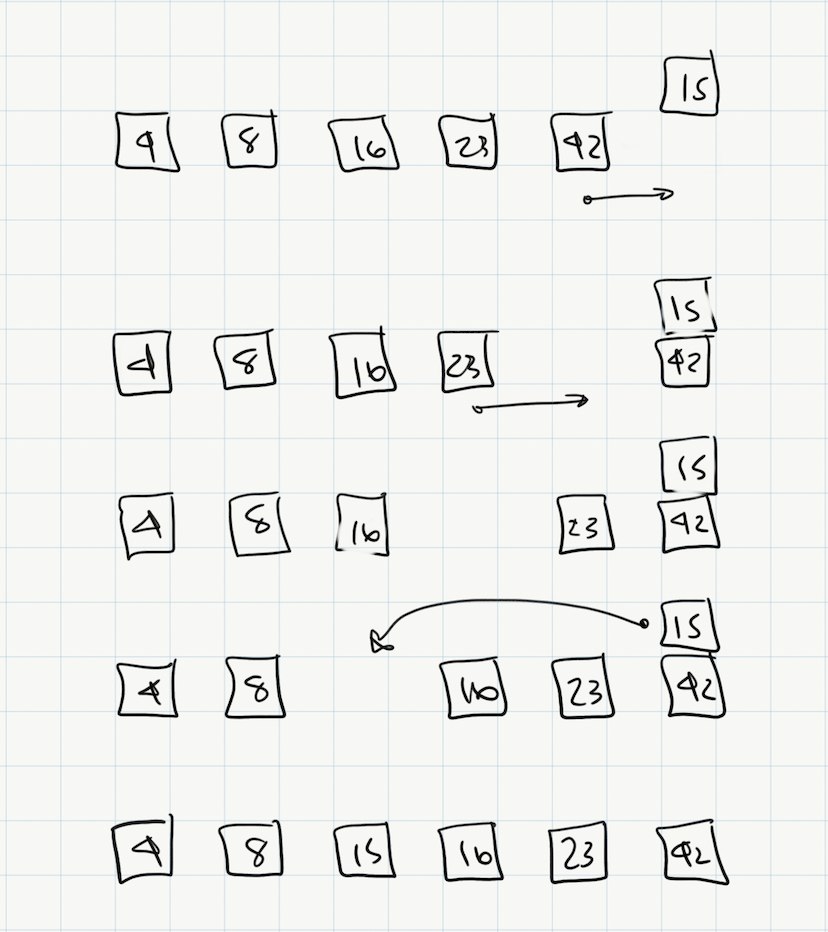 15
4 8 16 23 42
15
4 8 16 23 42
15
4 8 16 23 42
15
4 8 16 23 42
4 8 15 16 23 42